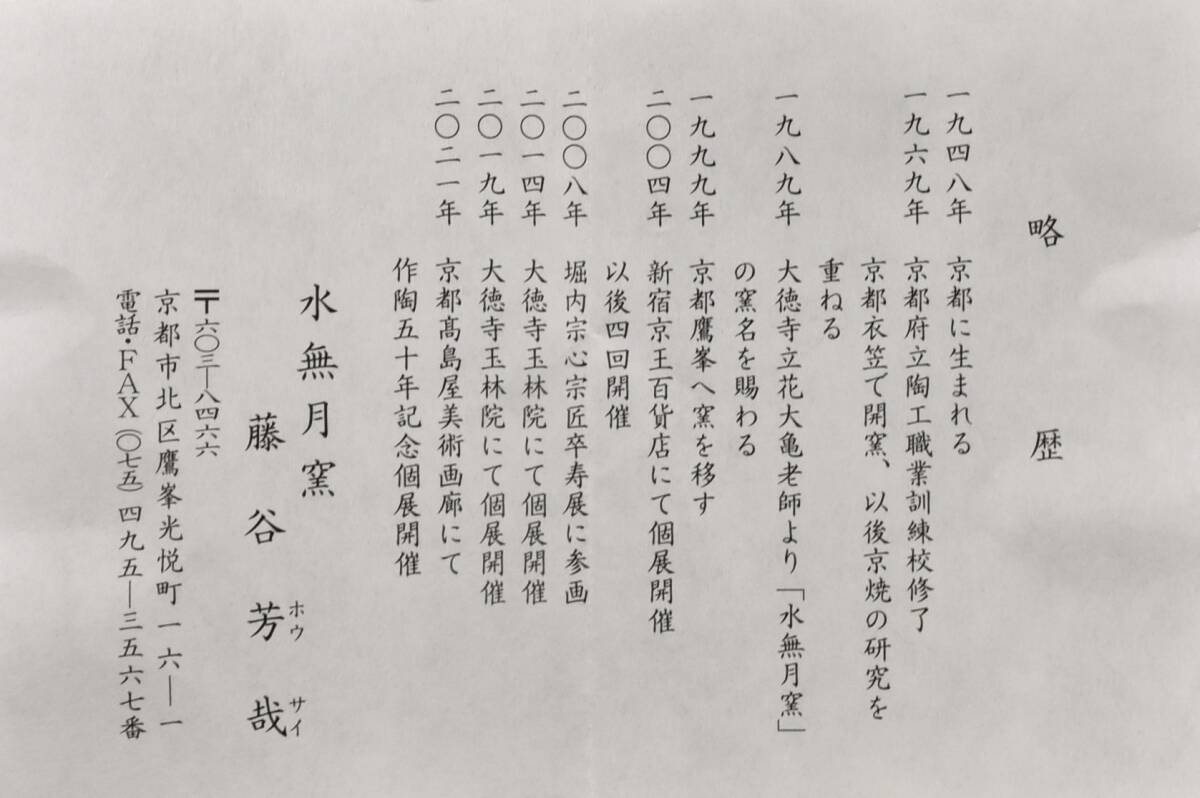 略歴
一九四八年 京都に生まれる
一九六九年 京都府立陶工職業訓練校修了
京都衣笠で開窯、以後京焼の研究を
重ねる
一九八九年 大徳寺立花大亀老師より「水無月窯」
の窯名を賜わる
一九九九年 京都鷹峯へ窯を移す
二〇〇四年 新宿京王百貨店にて個展開催
以後四回開催
二〇〇八年 堀内宗心宗匠卒寿展に参画
二〇一四年 大徳寺玉林院にて個展開催
二〇一九年 大徳寺玉林院にて個展開催
二〇二一年 京都髙島屋美術画廊にて
作陶五十年記念個展開催
水無月窯
藤谷芳哉
ホウサイ
〒六〇三―八四六六
京都市北区鷹峯光悦町一六―一
電話・FAX(〇七五)四九五―三五六七番